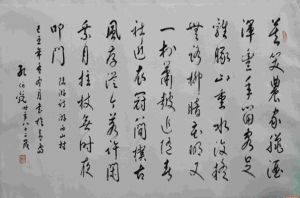 莫笑農家臘酒
渾豐年留客足
雞豚山重水復疑
無路柳暗花明又
一村簫鼓追隨春
社近衣冠簡樸古
風存從今若許閒
乘月拄杖無時夜
叩門
陸游詩游西山村
八十二歲